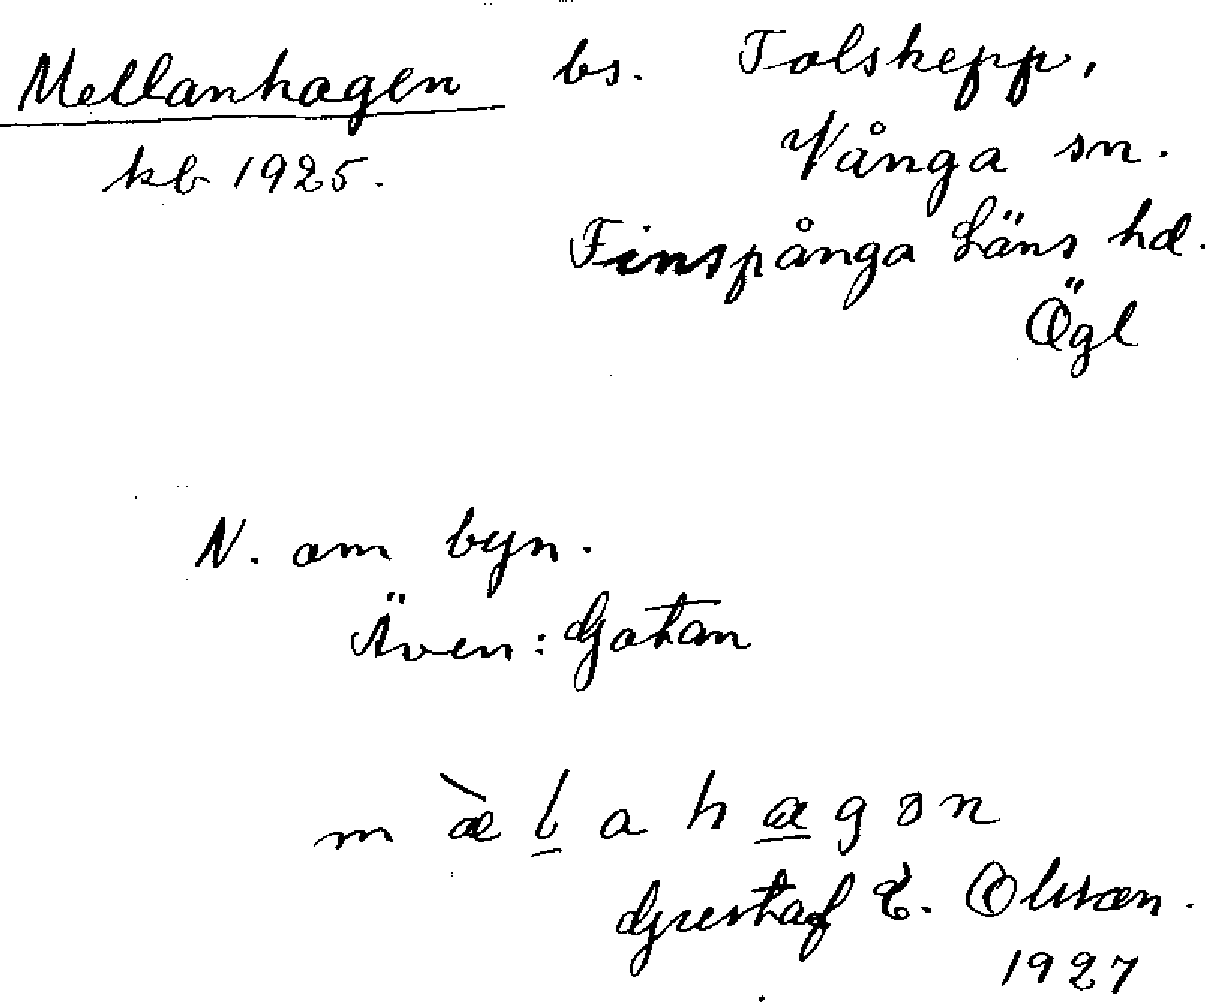 Mellanhagen bs. Tolskepp,
kb 1925. Vånga sn.
Finspånga Läns hd.
Ögl
N. om byn.
Även: Gatan
m æ̀ l̲ a h a̲ g ə n
Gustaf E. Olsson.
1927